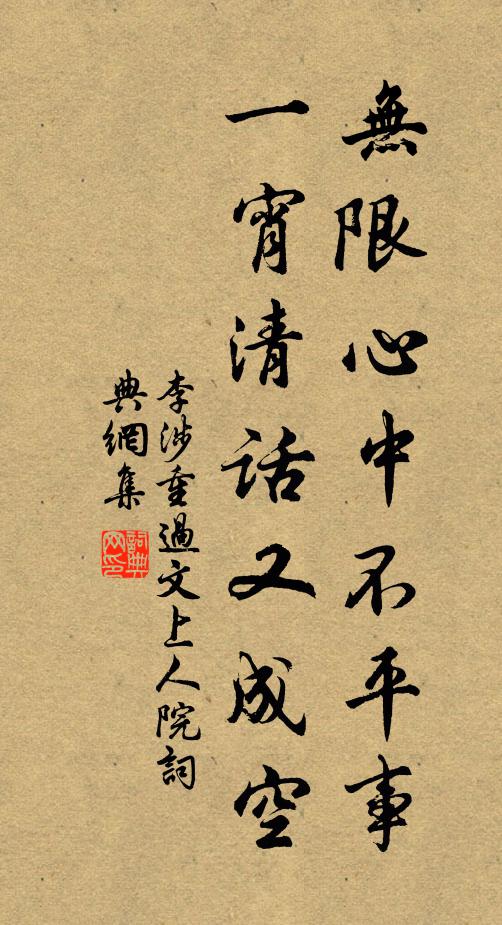 無限心中不平事
一宵清話又成空
李涉重過文上人院詞
典網集
詞典
网印